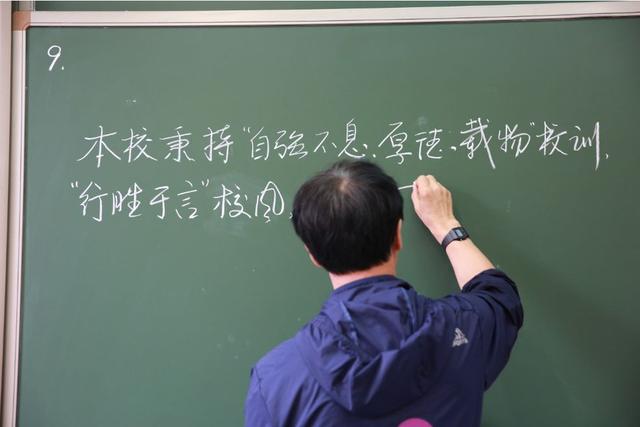 9.
本校秉持“自强不息、厚德载物”校训,
“行胜于言”校风,